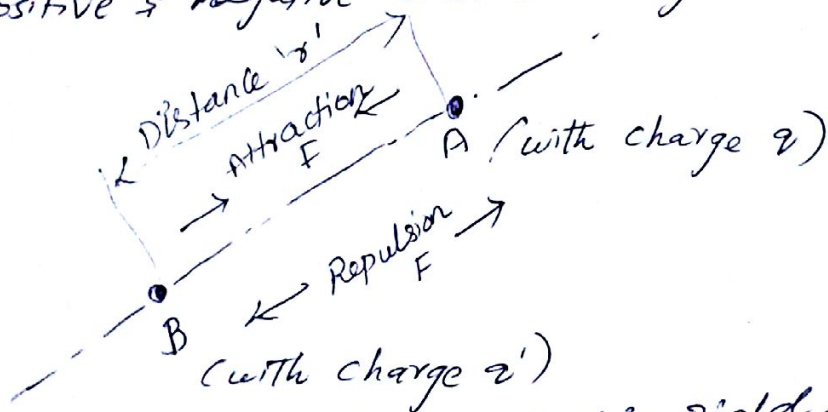 Distance 'r'
Attraction
F
A (with charge q)
Repulsion
F
B
(with charge q')